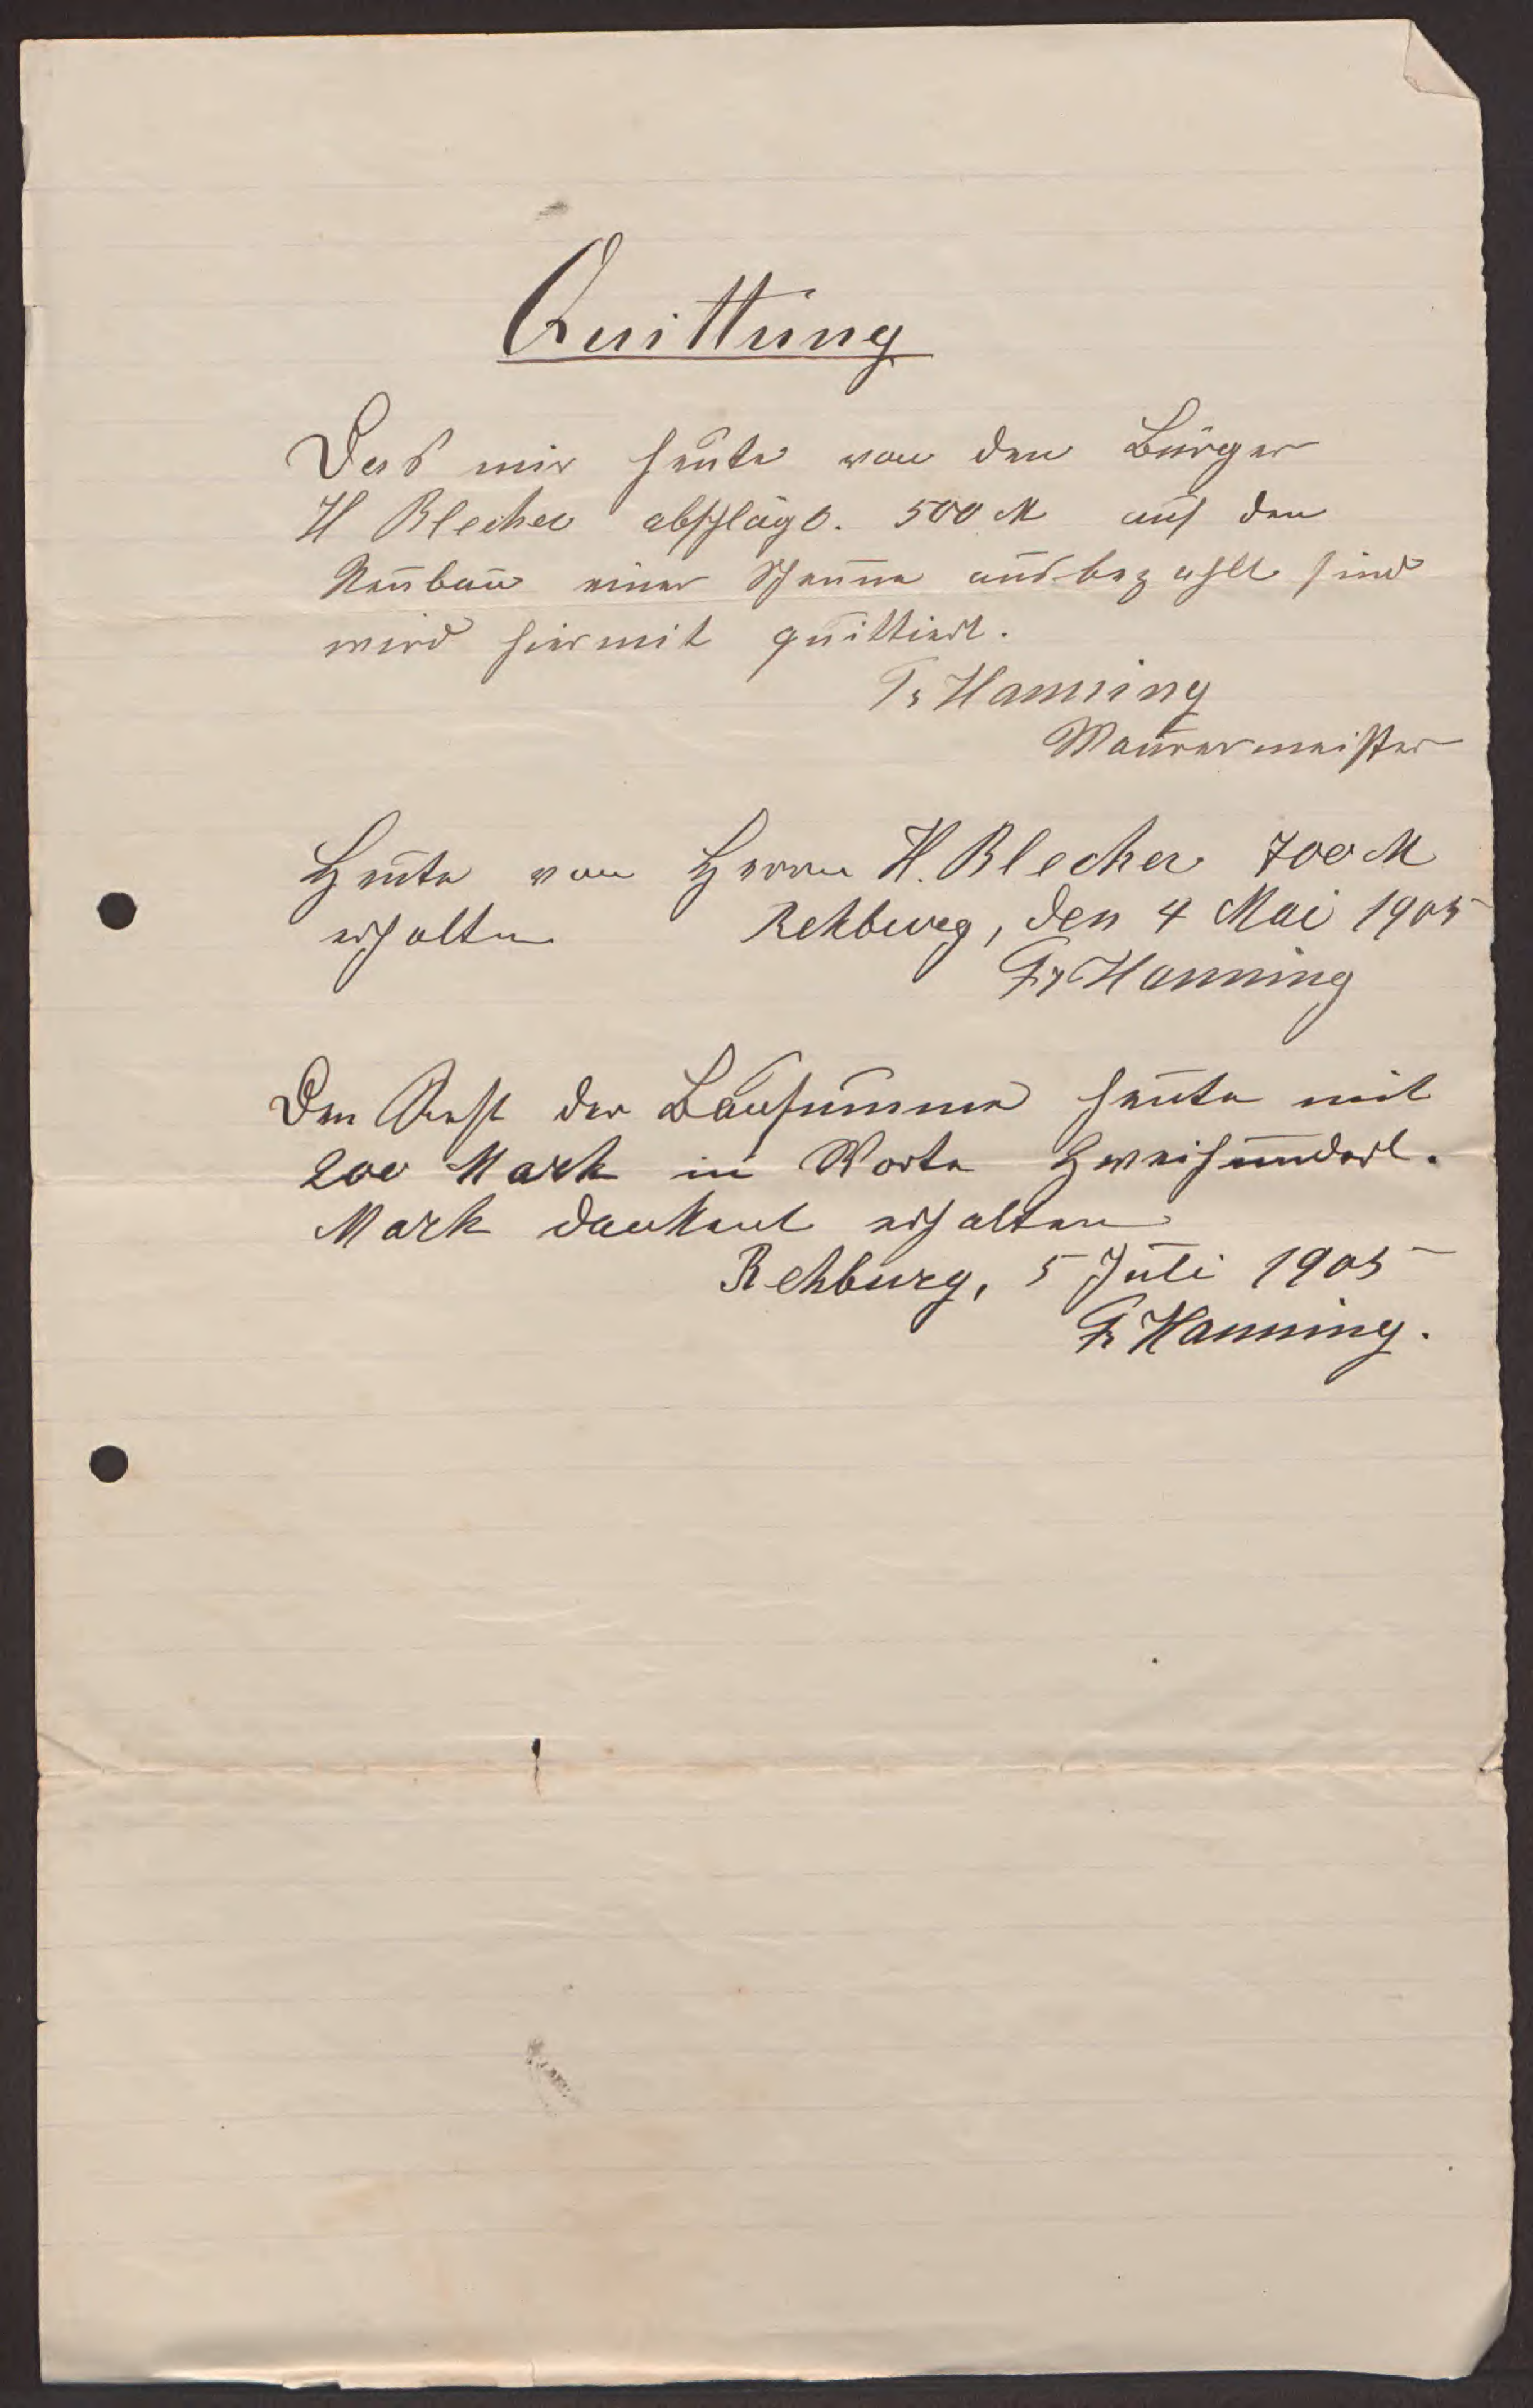 Quittung
Das mir heute von den Bürger
H Blecher abschlägl. 500 M auf den
Neubau einer Scheune ausbezahlt sind
wird hiermit quittiert.
Fr Hanning
Maurermeister
Heute von Herrn H. Blecher 700 M
erhalten Rehburg, den 4 Mai 1905
Fr Hanning
Den Rest der Bausumme heute mit
200 Mark in Worte Zweihundert.
Mark dankent erhalten
Rehburg, 5 Juli 1905
Fr Hanning.